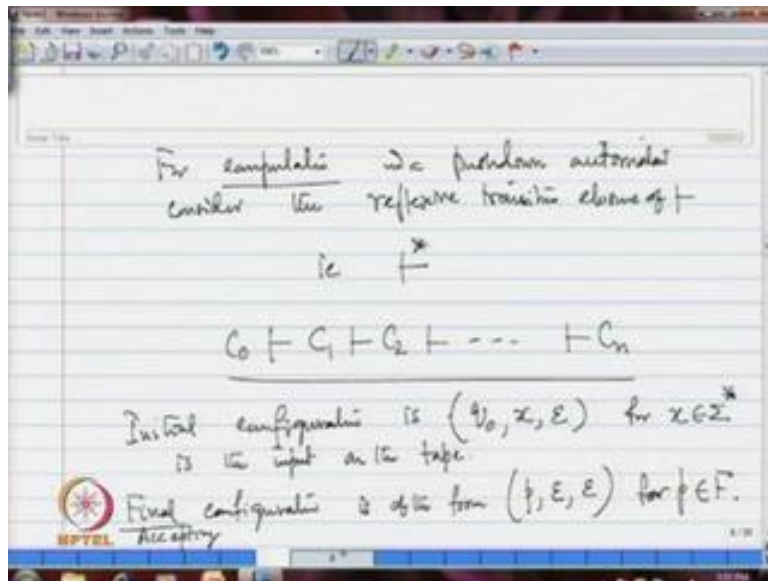 For computation in a pushdown automata
consider the reflexive transitive closure of ⊢
ie ⊢*
C₀ ⊢ C₁ ⊢ C₂ ⊢ --- ⊢ Cₙ
Initial configuration is (q₀, x, ε) for x ∈ Σ*
is the input on the tape.
Final configuration is of the form (p, ε, ε) for p ∈ F.
Accepting
NPTEL